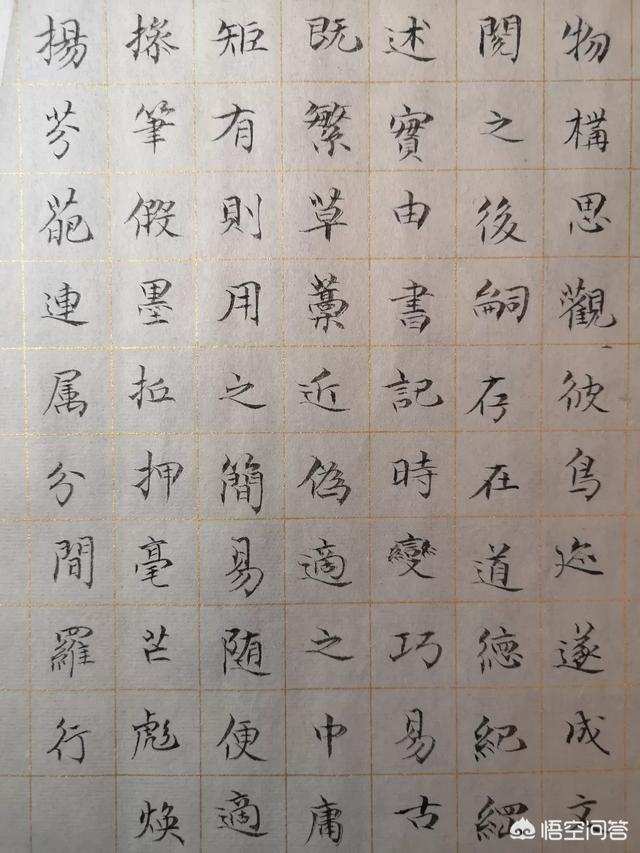 物構思觀彼鳥迹遂成文
閱之後嗣存在道德紀綱
述實由書記時變巧易古
既繁草藁近偽適之中庸
矩有則用之簡易随便適
操筆假墨抵押毫芒彪煥
揚芬葩連属分間羅行
悟空问答